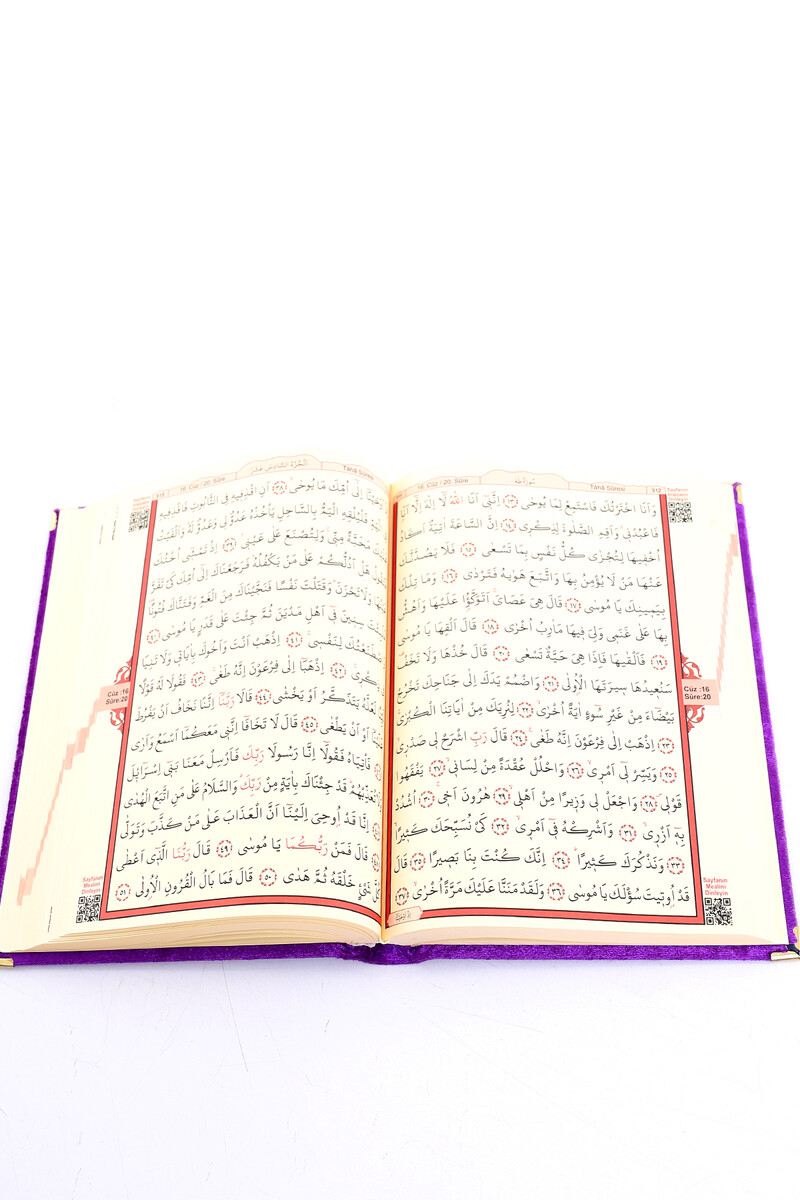 312 Tâhâ Sûresi سُورَةُ طٰهٰ 16. Cüz / 20. Sûre
وَاَنَا اخْتَرْتُكَ فَاسْتَمِعْ لِمَا يُوحٰى ﴿١٣﴾ اِنَّنٖٓى اَنَا اللّٰهُ لَٓا اِلٰهَ اِلَّٓا اَنَا
فَاعْبُدْنٖى وَاَقِمِ الصَّلٰوةَ لِذِكْرٖى ﴿١٤﴾ اِنَّ السَّاعَةَ اٰتِيَةٌ اَكَادُ
اُخْفٖيهَا لِتُجْزٰى كُلُّ نَفْسٍ بِمَا تَسْعٰى ﴿١٥﴾ فَلَا يَصُدَّنَّكَ
عَنْهَا مَنْ لَا يُؤْمِنُ بِهَا وَاتَّبَعَ هَوٰيهُ فَتَرْدٰى ﴿١٦﴾ وَمَا تِلْكَ
بِيَمٖينِكَ يَا مُوسٰى ﴿١٧﴾ قَالَ هِىَ عَصَاىَ اَتَوَكَّؤُا عَلَيْهَا وَاَهُشُّ
بِهَا عَلٰى غَنَمٖى وَلِىَ فٖيهَا مَاٰرِبُ اُخْرٰى ﴿١٨﴾ قَالَ اَلْقِهَا يَا مُوسٰى
﴿١٩﴾ فَاَلْقٰيهَا فَاِذَا هِىَ حَيَّةٌ تَسْعٰى ﴿٢٠﴾ قَالَ خُذْهَا وَلَا تَخَفْ
سَنُعٖيدُهَا سٖيرَتَهَا الْاُولٰى ﴿٢١﴾ وَاضْمُمْ يَدَكَ اِلٰى جَنَاحِكَ تَخْرُجْ
بَيْضَٓاءَ مِنْ غَيْرِ سُٓوءٍ اٰيَةً اُخْرٰى ﴿٢٢﴾ لِنُرِيَكَ مِنْ اٰيَاتِنَا الْكُبْرٰى
﴿٢٣﴾ اِذْهَبْ اِلٰى فِرْعَوْنَ اِنَّهُ طَغٰى ﴿٢٤﴾ قَالَ رَبِّ اشْرَحْ لٖى صَدْرٖى
﴿٢٥﴾ وَيَسِّرْ لٖٓى اَمْرٖى ﴿٢٦﴾ وَاحْلُلْ عُقْدَةً مِنْ لِسَانٖى ﴿٢٧﴾ يَفْقَهُوا
قَوْلٖى ﴿٢٨﴾ وَاجْعَلْ لٖى وَزٖيرًا مِنْ اَهْلٖى ﴿٢٩﴾ هٰرُونَ اَخٖى ﴿٣٠﴾ اُشْدُدْ
بِهٖٓ اَزْرٖى ﴿٣١﴾ وَاَشْرِكْهُ فٖٓى اَمْرٖى ﴿٣٢﴾ كَىْ نُسَبِّحَكَ كَثٖيرًا
﴿٣٣﴾ وَنَذْكُرَكَ كَثٖيرًا ﴿٣٤﴾ اِنَّكَ كُنْتَ بِنَا بَصٖيرًا ﴿٣٥﴾ قَالَ
قَدْ اُوتٖيتَ سُؤْلَكَ يَا مُوسٰى ﴿٣٦﴾ وَلَقَدْ مَنَنَّا عَلَيْكَ مَرَّةً اُخْرٰى ﴿٣٧﴾
Cüz :16
Sûre:20
Sayfanın
Mealini
Dinleyin
Tâhâ Sûresi اَلْجُزْءُ السَّادِسَ عَشَرَ 16. Cüz / 20. Sûre
اِلٰٓى اُمِّكَ مَا يُوحٰى ﴿٣٨﴾ اَنِ اقْذِفٖيهِ فِى التَّابُوتِ فَاقْذِفٖيهِ
فَلْيُلْقِهِ الْيَمُّ بِالسَّاحِلِ يَأْخُذْهُ عَدُوٌّ لٖى وَعَدُوٌّ لَهُ وَاَلْقَيْتُ
مَحَبَّةً مِنّٖى وَلِتُصْنَعَ عَلٰى عَيْنٖى ﴿٣٩﴾ اِذْ تَمْشٖٓى اُخْتُكَ
هَلْ اَدُلُّكُمْ عَلٰى مَنْ يَكْفُلُهُ فَرَجَعْنَاكَ اِلٰٓى اُمِّكَ كَىْ تَقَرَّ
وَلَا تَحْزَنَ وَقَتَلْتَ نَفْسًا فَنَجَّيْنَاكَ مِنَ الْغَمِّ وَفَتَنَّاكَ فُتُونًا
سِنٖينَ فٖٓى اَهْلِ مَدْيَنَ ثُمَّ جِئْتَ عَلٰى قَدَرٍ يَا مُوسٰى ﴿٤٠﴾
لِنَفْسٖى ﴿٤١﴾ اِذْهَبْ اَنْتَ وَاَخُوكَ بِاٰيَاتٖى وَلَا تَنِيَا
﴿٤٢﴾ اِذْهَبَٓا اِلٰى فِرْعَوْنَ اِنَّهُ طَغٰى ﴿٤٣﴾ فَقُولَا لَهُ قَوْلًا
لَعَلَّهُ يَتَذَكَّرُ اَوْ يَخْشٰى ﴿٤٤﴾ قَالَا رَبَّنَٓا اِنَّنَا نَخَافُ اَنْ يَفْرُطَ
اَوْ اَنْ يَطْغٰى ﴿٤٥﴾ قَالَ لَا تَخَافَٓا اِنَّنٖى مَعَكُمَٓا اَسْمَعُ وَاَرٰى
فَأْتِيَاهُ فَقُولَٓا اِنَّا رَسُولَا رَبِّكَ فَاَرْسِلْ مَعَنَا بَنٖٓى اِسْرَٓائٖلَ
قَدْ جِئْنَاكَ بِاٰيَةٍ مِنْ رَبِّكَ وَالسَّلَامُ عَلٰى مَنِ اتَّبَعَ الْهُدٰى
اِنَّا قَدْ اُوحِىَ اِلَيْنَٓا اَنَّ الْعَذَابَ عَلٰى مَنْ كَذَّبَ وَتَوَلّٰى
قَالَ فَمَنْ رَبُّكُمَا يَا مُوسٰى ﴿٤٩﴾ قَالَ رَبُّنَا الَّذٖٓى اَعْطٰى
شَىْءٍ خَلْقَهُ ثُمَّ هَدٰى ﴿٥٠﴾ قَالَ فَمَا بَالُ الْقُرُونِ الْاُولٰى ﴿٥١﴾
Cüz :16
Sûre:20
Sayfanın
Mealini
Dinleyin